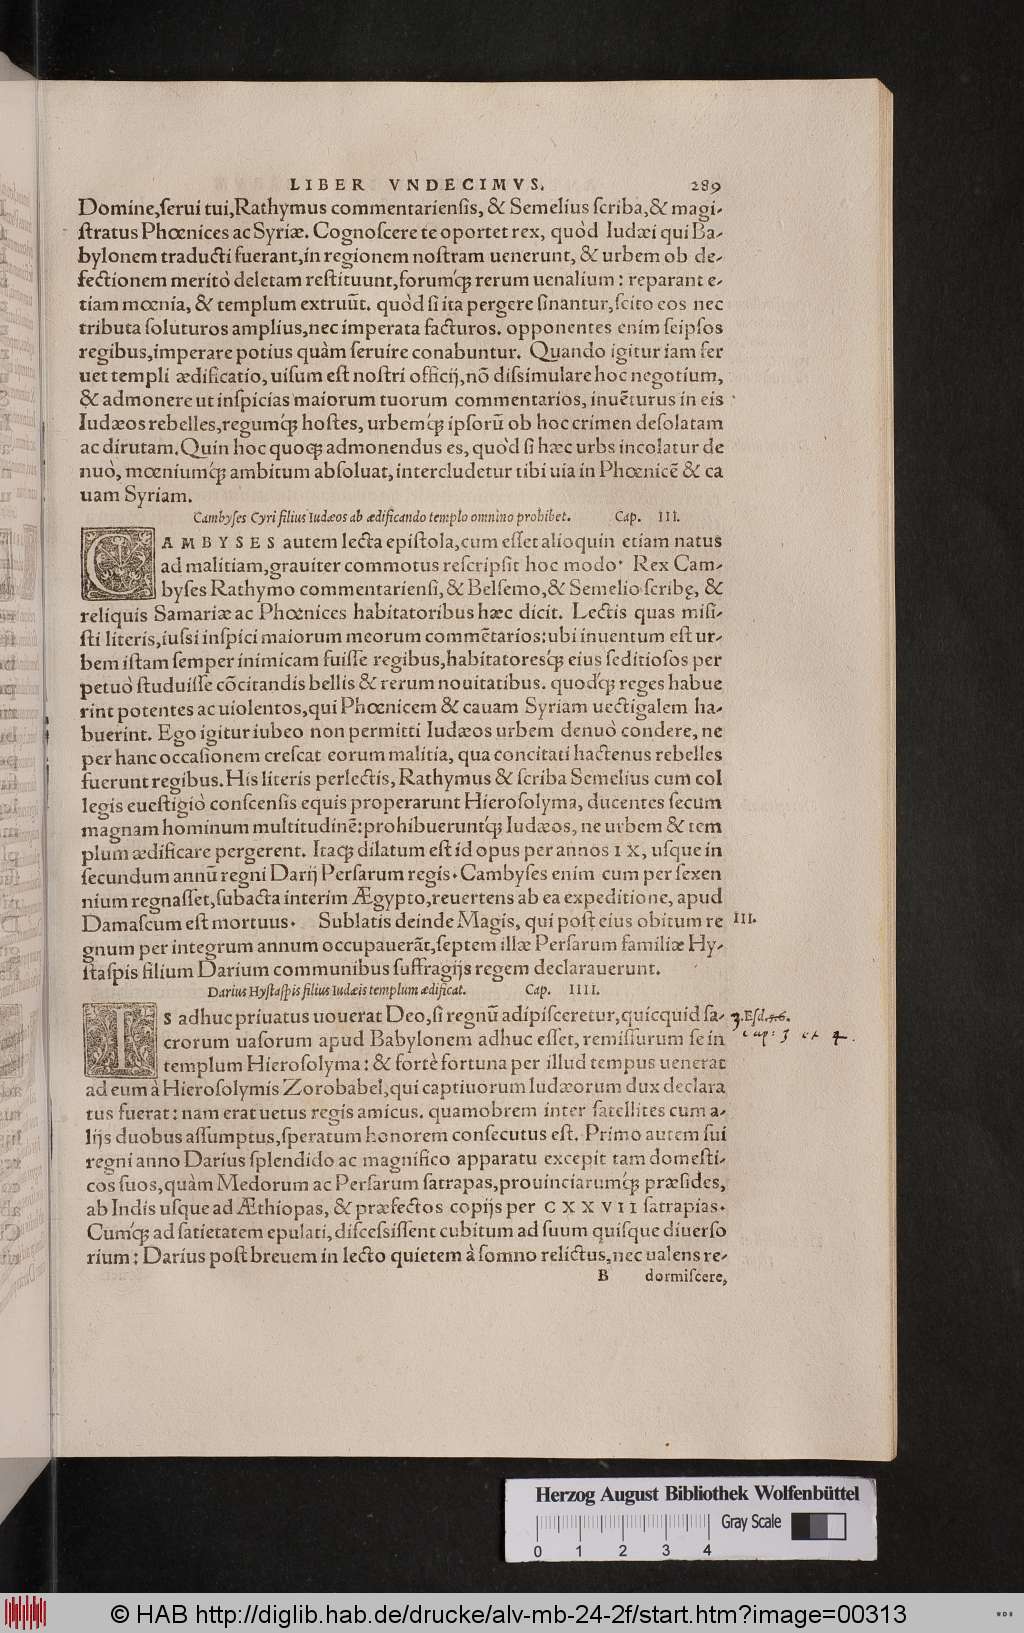 LIBER VNDECIMVS. 289
Domine,ſerui tui,Rathymus commentarienſis, & Semelius ſcriba,& magi-
ſtratus Phœnices ac Syriæ. Cognoſcere te oportet rex, quòd Iudæi qui Ba-
bylonem traducti fuerant,in regionem noſtram uenerunt, & urbem ob de-
fectionem meritò deletam reſtituunt,forumq́ꝫ rerum uenalium : reparant e-
tiam mœnia, & templum extruūt. quòd ſi ita pergere ſinantur,ſcito eos nec
tributa ſoluturos amplius,nec imperata facturos. opponentes enim ſeipſos
regibus,imperare potius quàm ſeruire conabuntur. Quando igitur iam fer
uet templi ædificatio, uiſum eſt noſtri officij,nō diſsimulare hoc negotium,
& admonere ut inſpicias maiorum tuorum commentarios, inuēturus in eis
Iudæos rebelles,regumq́ꝫ hoſtes, urbemq́ꝫ ipſorū ob hoc crimen deſolatam
ac dirutam. Quin hoc quoqꝫ admonendus es, quòd ſi hæc urbs incolatur de
nuò, mœniumq́ꝫ ambitum abſoluat, intercludetur tibi uia in Phœnicē & ca
uam Syriam.
Cambyſes Cyri filius Iudæos ab ædificando templo omnino prohibet. Cap. III.
CAMBYSES autem lecta epiſtola,cum eſſet alioquin etiam natus
ad malitiam,grauiter commotus reſcripſit hoc modo· Rex Cam-
byſes Rathymo commentarienſi, & Belſemo,& Semelio ſcribę, &
reliquis Samariæ ac Phœnices habitatoribus hæc dicit. Lectis quas miſi-
ſti literis,iuſsi inſpici maiorum meorum commētarios:ubi inuentum eſt ur-
bem iſtam ſemper inimicam fuiſſe regibus,habitatoresq́ꝫ eius ſeditioſos per
petuò ſtuduiſſe cōcitandis bellis & rerum nouitatibus. quodq́ꝫ reges habue
rint potentes ac uiolentos,qui Phœnicem & cauam Syriam uectigalem ha-
buerint. Ego igitur iubeo non permitti Iudæos urbem denuò condere, ne
per hanc occaſionem creſcat eorum malitia, qua concitati hactenus rebelles
fuerunt regibus. His literis perlectis, Rathymus & ſcriba Semelius cum col
legis eueſtigiò conſcenſis equis properarunt Hieroſolyma, ducentes ſecum
magnam hominum multitudinē:prohibueruntq́ꝫ Iudæos, ne urbem & tem
plum ædificare pergerent. Itaqꝫ dilatum eſt id opus per annos IX, uſque in
ſecundum annū regni Darij Perſarum regis· Cambyſes enim cum per ſexen
nium regnaſſet,ſubacta interim Ægypto,reuertens ab ea expeditione, apud
Damaſcum eſt mortuus· Sublatis deinde Magis, qui poſt eius obitum re III.
gnum per integrum annum occupauerāt,ſeptem illæ Perſarum familiæ Hy-
ſtaſpis filium Darium communibus ſuffragijs regem declarauerunt.
Darius Hyſtaſpis filius Iudæis templum ædificat. Cap. IIII.
IS adhuc priuatus uouerat Deo,ſi regnū adipiſceretur,quicquid ſa- 3.Eſd.
crorum uaſorum apud Babylonem adhuc eſſet, remiſſurum ſe in cap: 3 et 4.
templum Hieroſolyma : & fortè fortuna per illud tempus uenerat
ad eum à Hieroſolymis Zorobabel,qui captiuorum Iudæorum dux declara
tus fuerat : nam erat uetus regis amicus. quamobrem inter ſatellites cum a-
lijs duobus aſſumptus,ſperatum honorem conſecutus eſt. Primo autem ſui
regni anno Darius ſplendido ac magnifico apparatu excepit tam domeſti-
cos ſuos,quàm Medorum ac Perſarum ſatrapas,prouinciarumq́ꝫ præſides,
ab Indis uſque ad Æthiopas, & præfectos copijs per CXXVII ſatrapias·
Cumq́ꝫ ad ſatietatem epulati, diſceſsiſſent cubitum ad ſuum quiſque diuerſo
rium : Darius poſt breuem in lecto quietem à ſomno relictus, nec ualens re-
B dormiſcere,
Herzog August Bibliothek Wolfenbüttel
0 1 2 3 4 Gray Scale
© HAB http://diglib.hab.de/drucke/alv-mb-24-2f/start.htm?image=00313